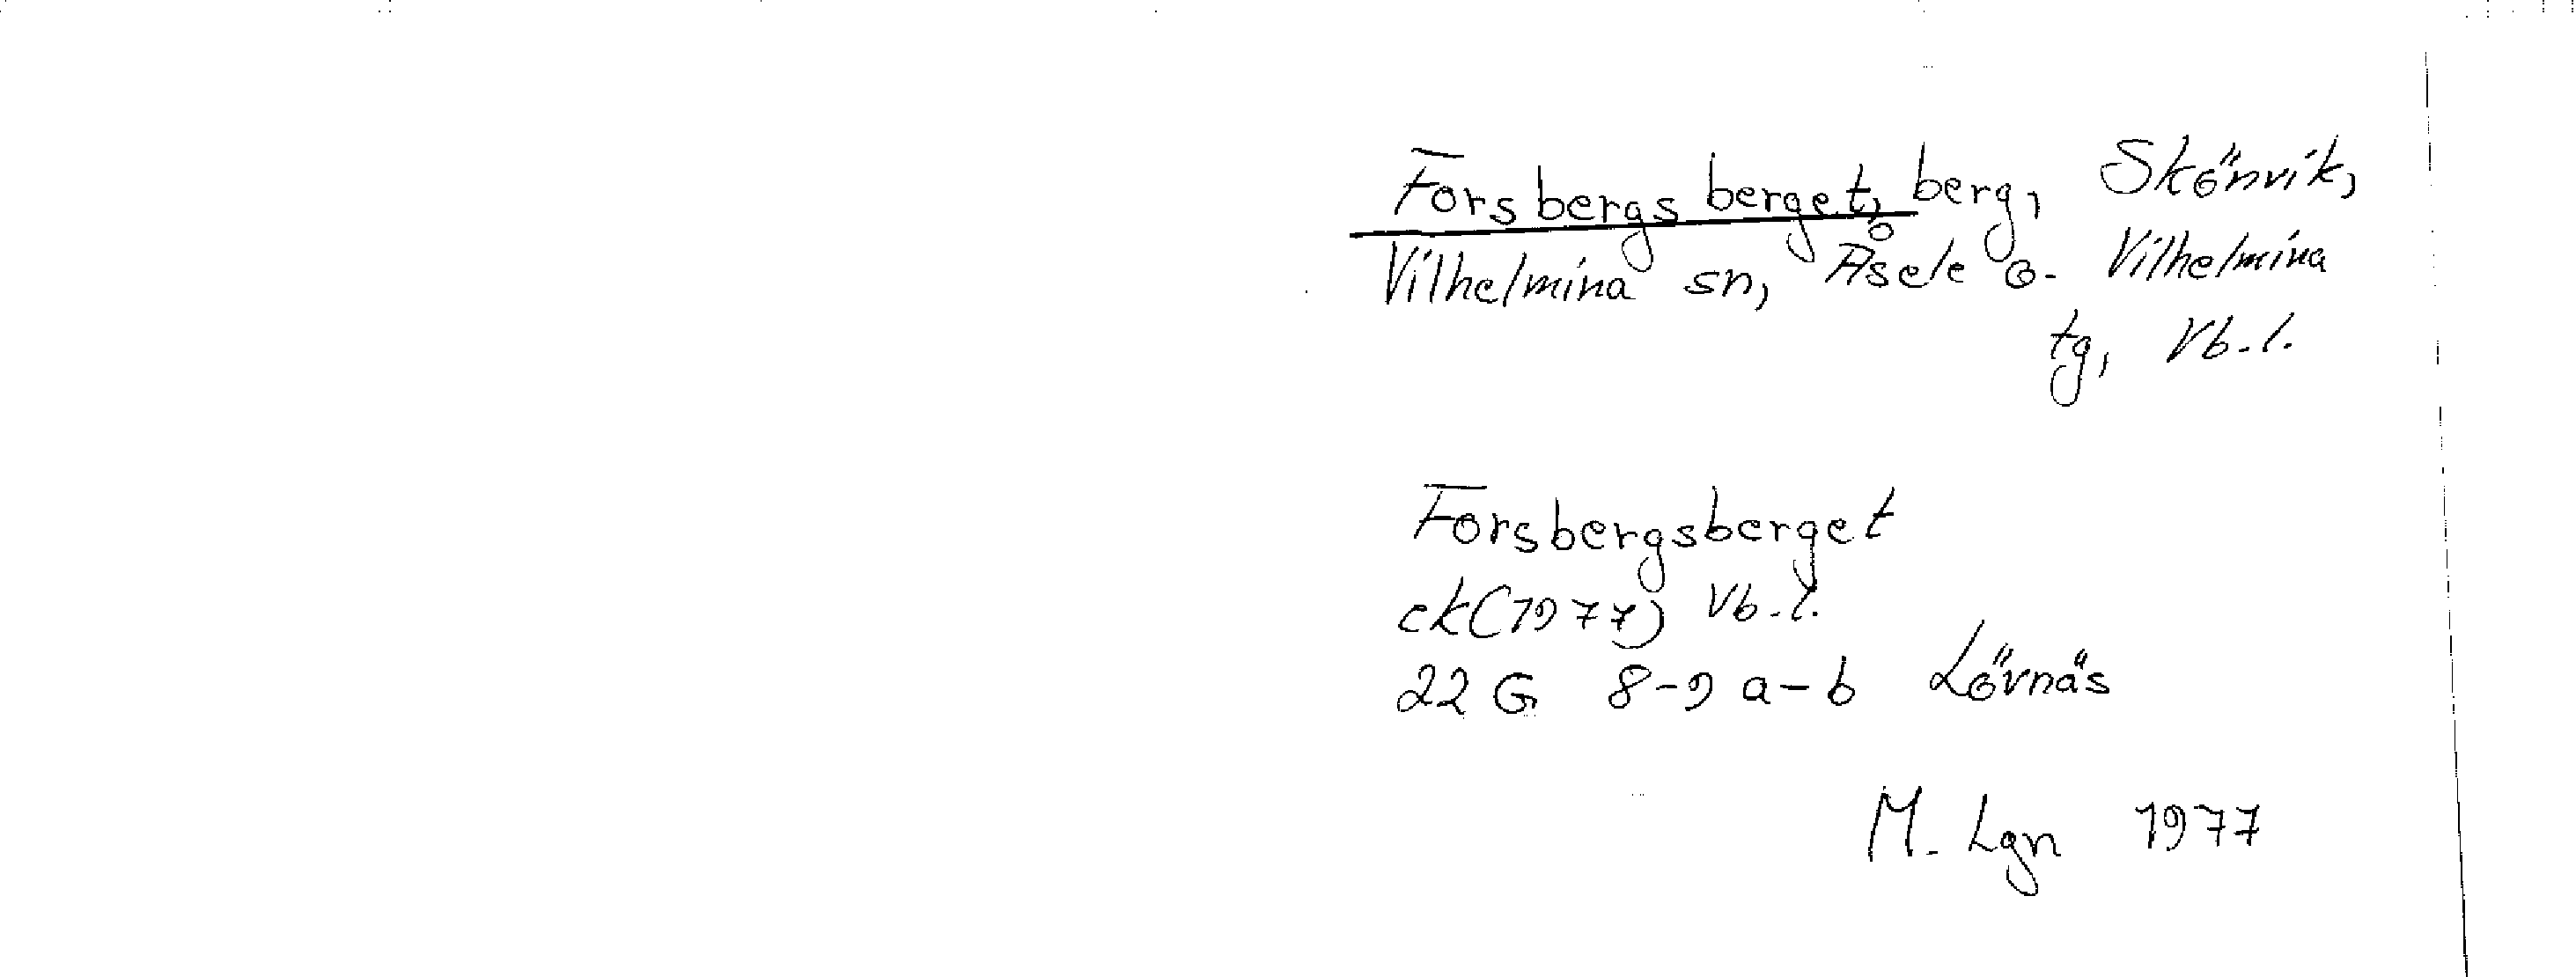 Forsbergsberget, berg, Skönvik,
Vilhelmina sn, Åsele o. Vilhelmina
tg, Vb. l.
Forsbergsberget
ek(1977) Vb. l.
22 G 8-9 a-b Lövnäs
M. Lgn 1977